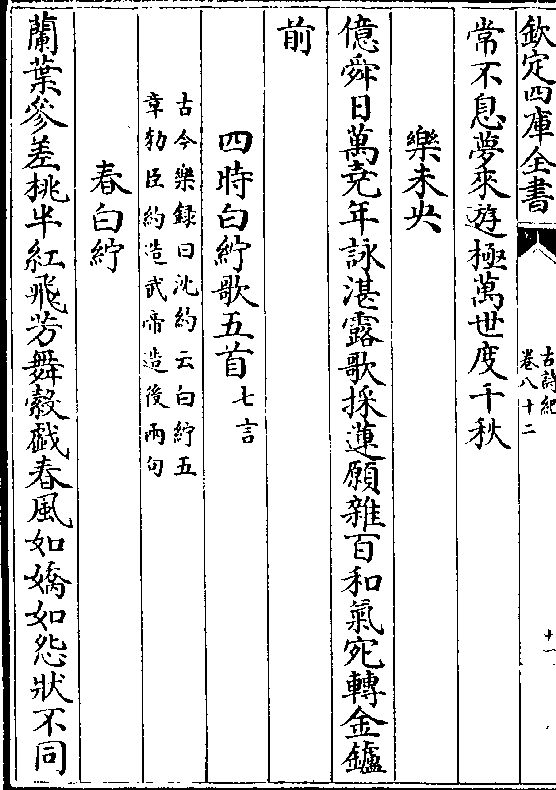 欽定四庫全書
古詩紀
卷八十二
十一
常不息夢來遊極萬世度千秋
樂未央
億舜日萬堯年詠湛露歌採蓮願雜百和氣宛轉金鑪
前
四時白紵歌五首七言
古今樂録曰沈約云白紵五
章勑臣約造武帝造後兩句
春白紵
蘭葉參差桃半紅飛芳舞縠戯春風如嬌如怨狀不同